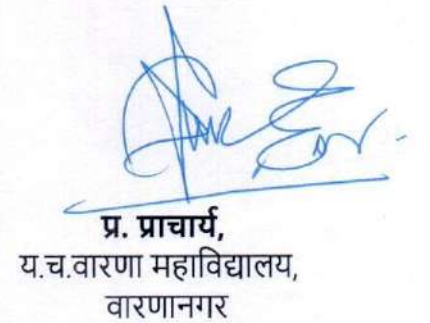 प्र. प्राचार्य,
य.च.वारणा महाविद्यालय,
वारणानगर